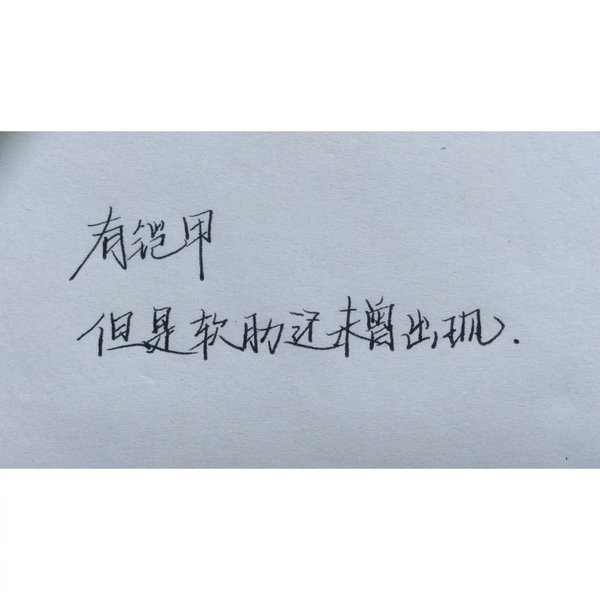 有铠甲
但是软肋还未曾出现.